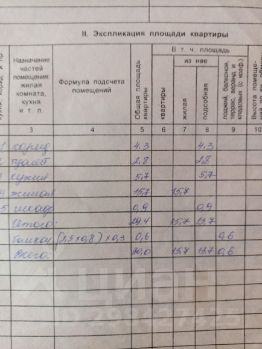 II. Экспликация площади квартиры
В т. ч. площадь
из нее
Назначение частей помещения: жилая комната, кухня и т. п.
Формула подсчета помещений
Общая площадь квартиры
квартиры
жилая
подсобная
3 4 5 6 7 8 9 10
1 корид. 4.3 4.3
2 туалет 2.8 2.8
3 кухня 5,7 5.7
4 жилая 15,7 15,7
5 шкаф 0,9 0,9
Итого: 29.4 15.7 13.7
Балкон (2,3 x 0,8) x 0,3 0,6 0,6
Всего: 30,0 15,7 13.7 0,6